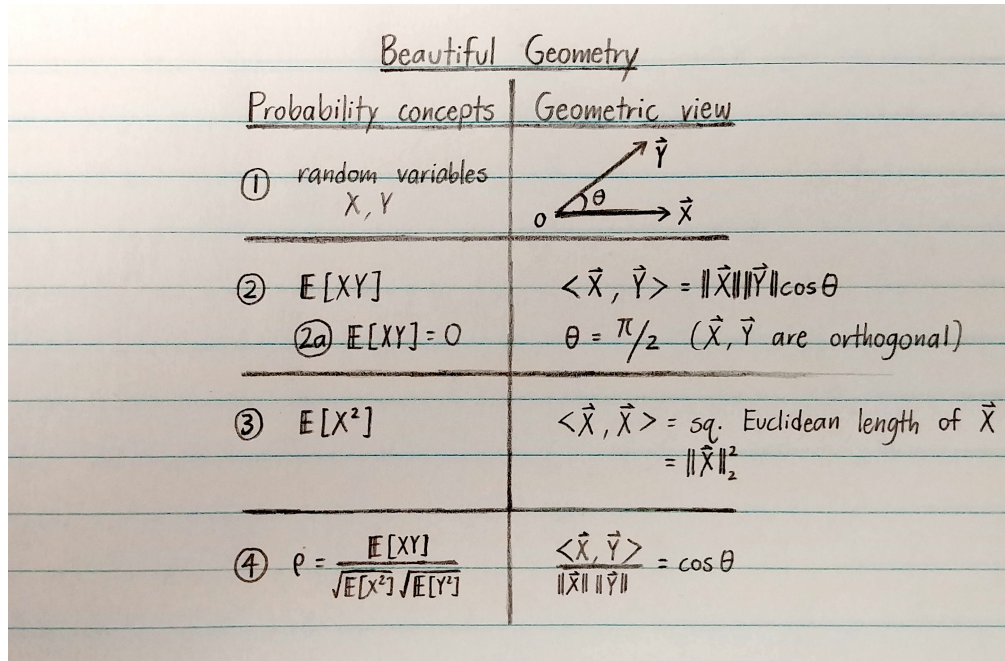 Beautiful Geometry
Probability concepts Geometric view
① random variables
X, Y
Y⃗
θ
O X⃗
② 𝔼[XY] <X⃗, Y⃗> = ‖X⃗‖‖Y⃗‖cosθ
(2a) 𝔼[XY] = 0 θ = π/2 (X⃗, Y⃗ are orthogonal)
③ 𝔼[X²] <X⃗, X⃗> = sq. Euclidean length of X⃗
= ‖X⃗‖₂²
④ ρ = 𝔼[XY] / √𝔼[X²] √𝔼[Y²] <X⃗, Y⃗> / ‖X⃗‖ ‖Y⃗‖ = cosθ